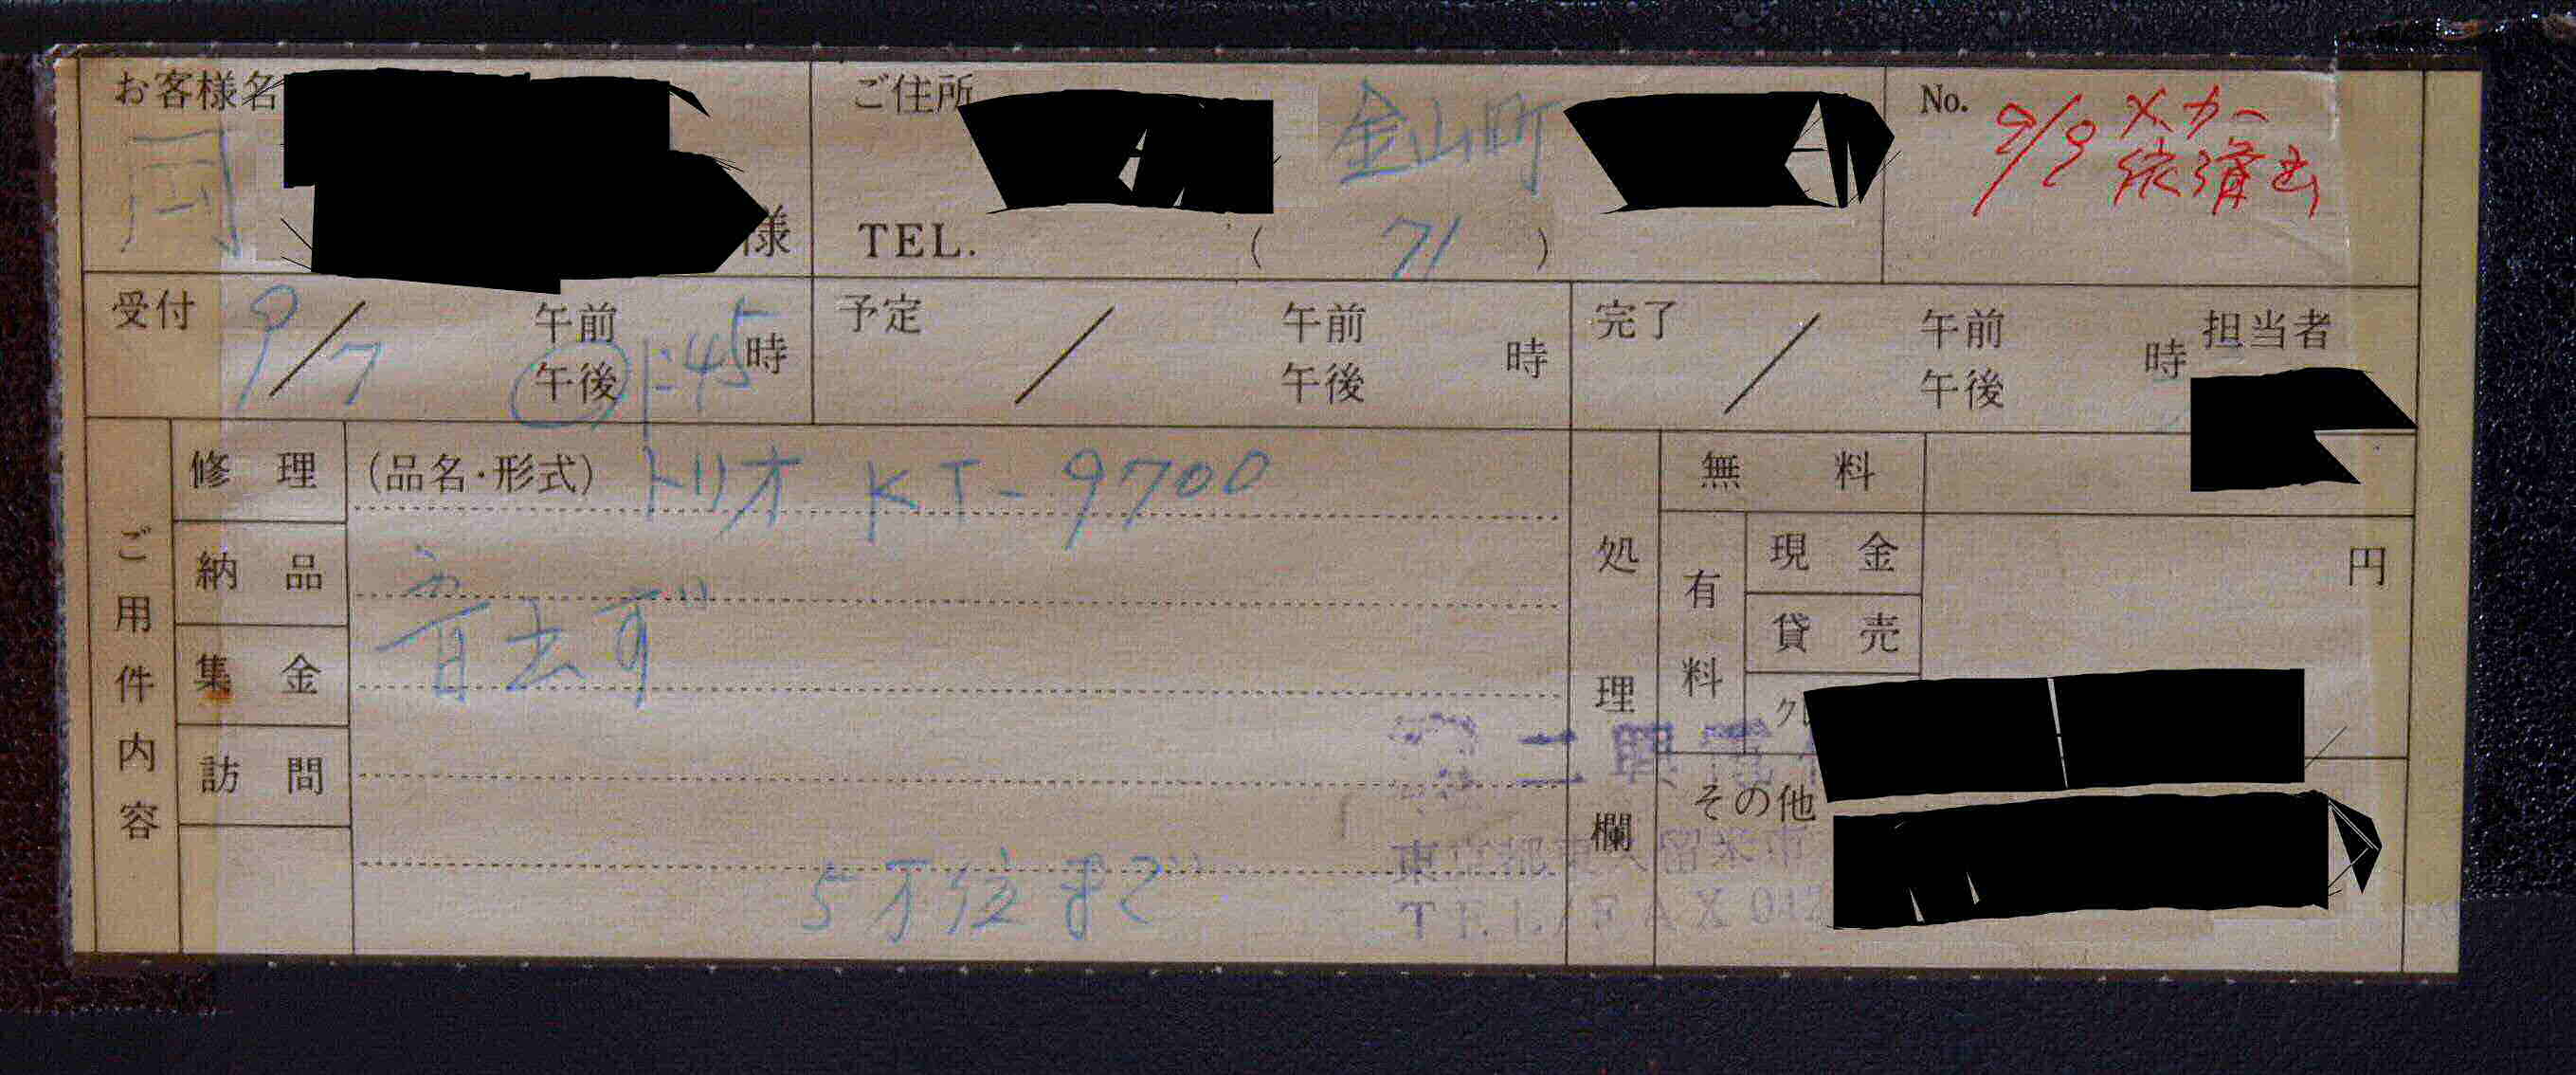 お客様名
岡 様
ご住所
金山町
TEL. ( 71 )
No. 9/9 メーカー
依頼済
受付 9/7 午前 午後 1:45 時
予定 / 午前 午後 時
完了 / 午前 午後 時
担当者
ご用件内容
修理
納品
集金
訪問
(品名・形式) トリオ KT-9700
音出ず
5万位まで
処理欄
無料
有料
現金 円
貸売
その他
東京都東久留米市
TEL/FAX 042